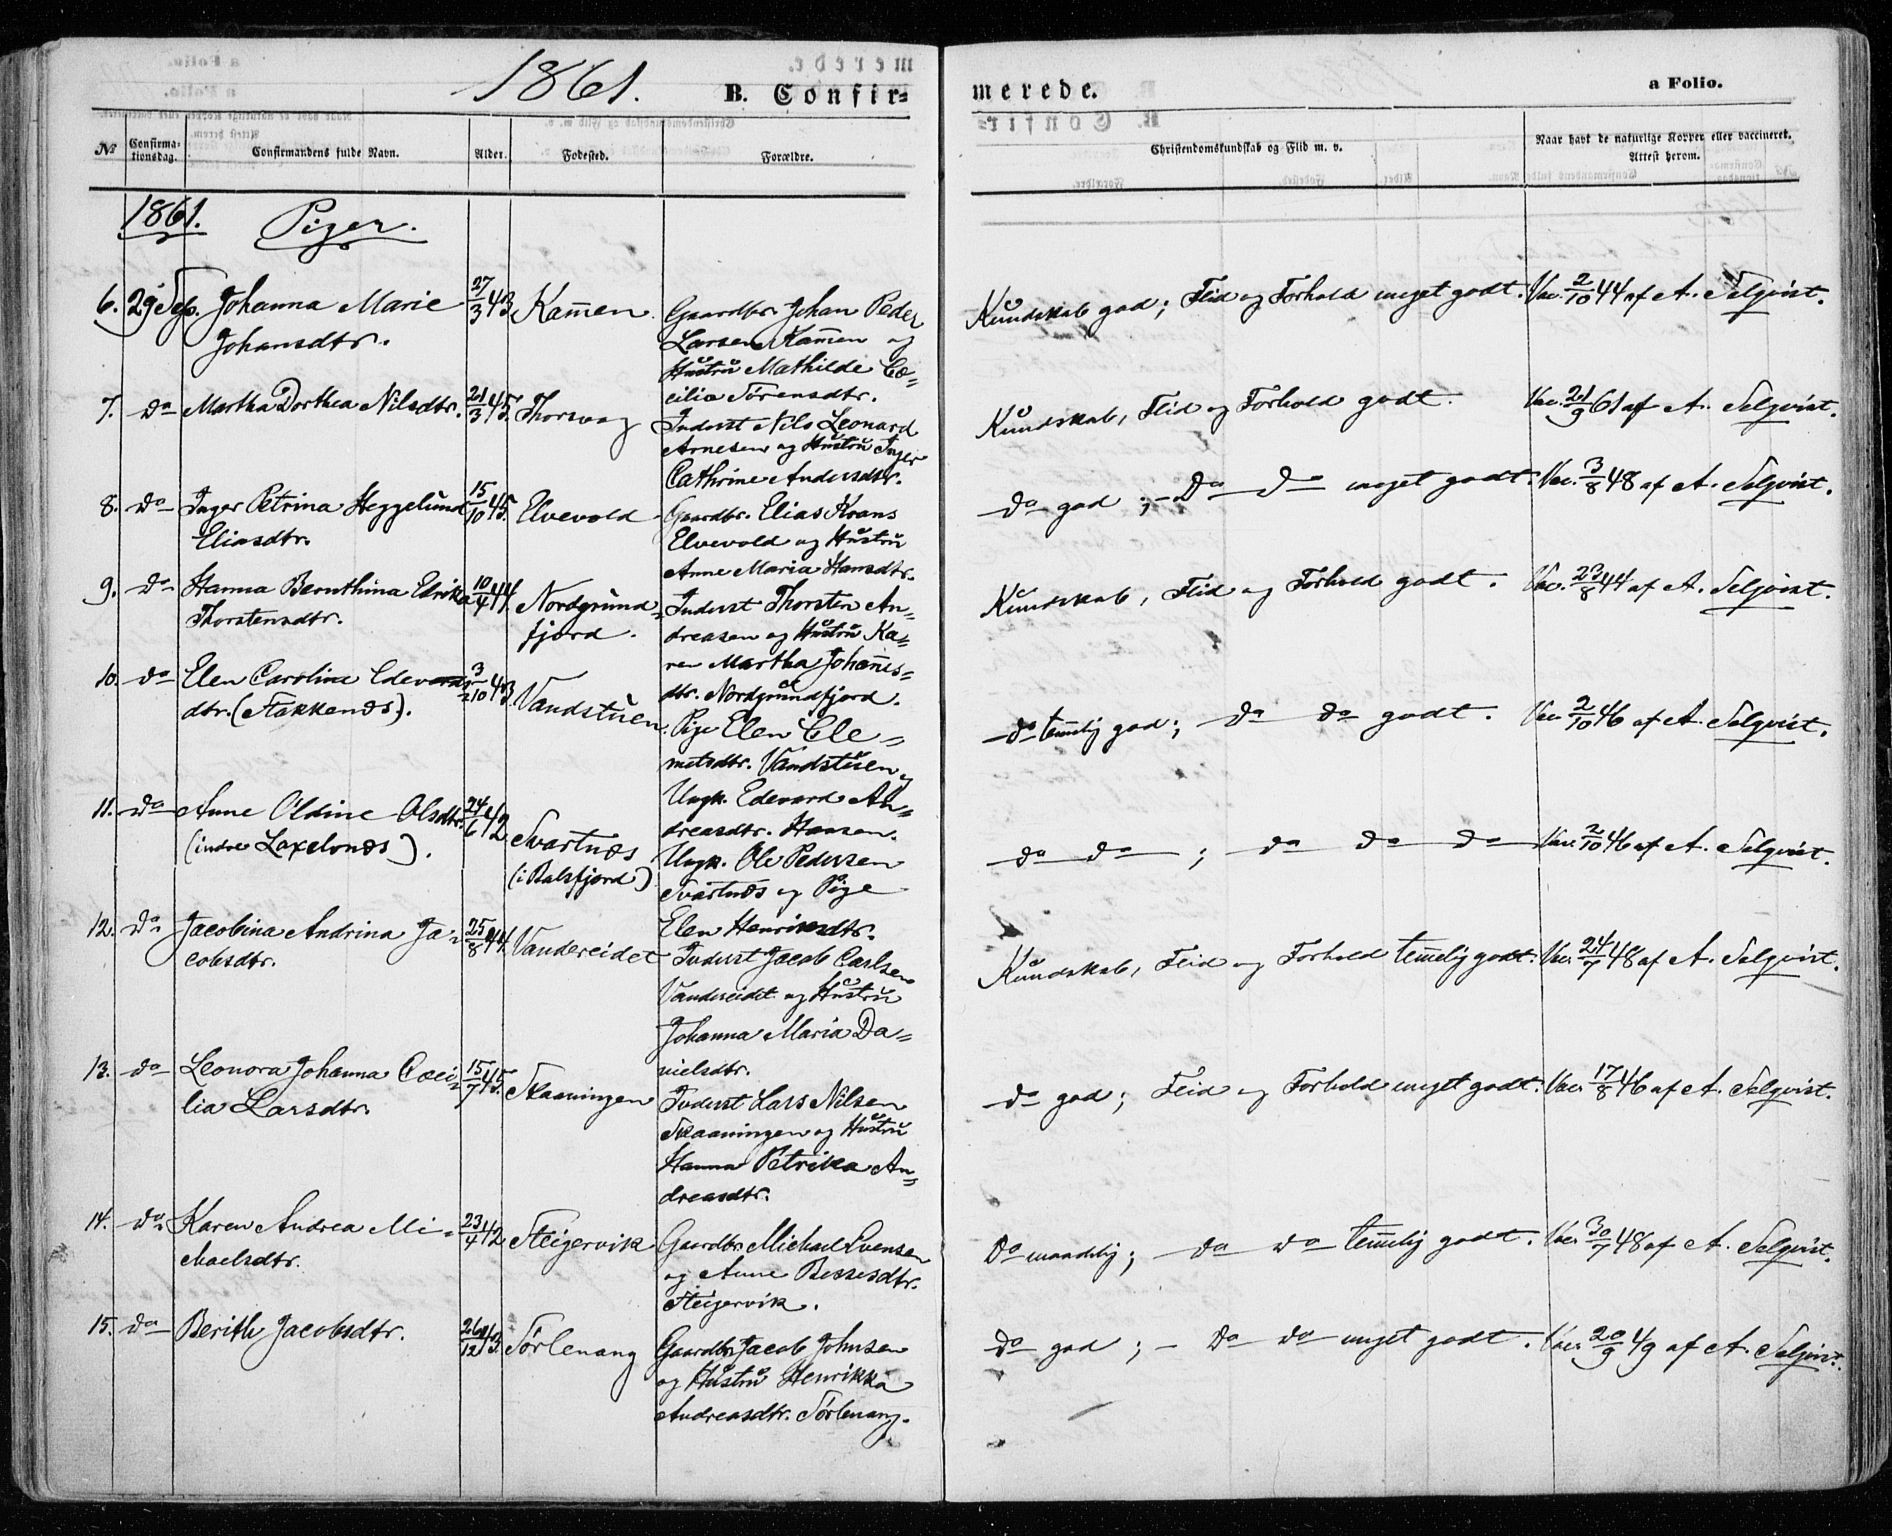 1861.
B. Confir=
merede.
a Folio.
No
Confirma-
tionsdag.
Confirmandens fulde Navn.
Alder.
Fødested.
Forældre.
Christendomskundskab og Flid m. v.
Naar havt de naturlige Kopper eller vaccineret.
Attest herom.
1861. Piger.
6. 29 Sep. Johanna Marie
Johansdtr.
27/3 43 Kam̄en.
Gaardbr. Johan Peder
Larsen Kam̄en og
Hustru Mathilde Cæ=
cilia Sørensdtr.
Kundskab god; Flid og Forhold meget godt. Vac. 2/10 44 af A. Selqvist.
7. do Martha Dorthea Nilsdtr.
21/3 45. Thorsvog
Inderst Nils Leonard
Arnesen og Hustru Inger
Cathrine Andersdtr.
Kundskab, Flid og Forhold godt. Vac. 21/9 61 af A. Selqvist.
8. do Inger Petrina Heggelund
Eliasdtr.
15/10 45. Elvevold
Gaardbr. Elias Kvans
Elvevold og Hustru
Anne Maria Hansdtr.
do god; - Do do meget godt. Vac. 3/8 48 af A. Selqvist.
9. do Hanna Bernthina Edrika
Thorstensdtr.
10/4 44. Nordgrund=
fjord.
Inderst Thorsten An=
dreasen og Hustru Ka=
ren Martha Johan̄es=
dtr. Nordgrundfjord.
Kundskab, Flid og Forhold godt. Vac. 23/8 44 af A. Selqvist.
10. do Elen Caroline Edevards=
dtr. (Stakkenæs).
3/10 43. Vandstuen.
Pige Elen Cle=
metsdtr. Vandstuen og
Ungk. Edevard An=
dreasdtr. Hansen.
do tem̄elig god; do do godt. Vac. 2/10 46 af A. Selqvist.
11. do Anne Oldine Olsdtr.
(indre Laxelvnæs).
24/6 42 Svartnæs
(i Balsfjord)
Ungk. Ole Pedersen
Svartnæs og Pige
Elen Henriksdtr.
do do; do do do Vac. 2/10 46 af A. Selqvist.
12. do Jacobina Andrina Ja=
cobsdtr.
25/8 44. Vandereidet
Inderst Jacob Carlsen
Vandereidet og Hustru
Johanna Maria Da=
nielsdtr.
Kundskab, Flid og Forhold tem̄elig godt. Vac. 24/7 48 af A. Selqvist.
13. do Leonora Johanna Cæci=
lia Larsdtr.
15/7 45. Skaaningen
Inderst Lars Nilsen
Skaaningen og Hustru
Hanna Petrika An=
dreasdtr.
do god; Flid og Forhold meget godt. Vac. 17/8 46 af A. Selqvist.
14. do Karen Andrea Mi=
chaelsdtr.
23/4 42 Steigervik
Gaardbr. Michael Svensen
og Anne Bessesdtr.
Steigervik.
Do maadelig; do do tem̄elig godt. Vac. 30/7 48 af A. Selqvist.
15. do Berith Jacobsdtr.
26/12 43. Sørlenang
Gaardbr. Jacob Johnsen
og Hustru Henrikka
Andreasdtr. Sørlenang.
do god; - Do do meget godt. Vac. 20/9 49 af A. Selqvist.